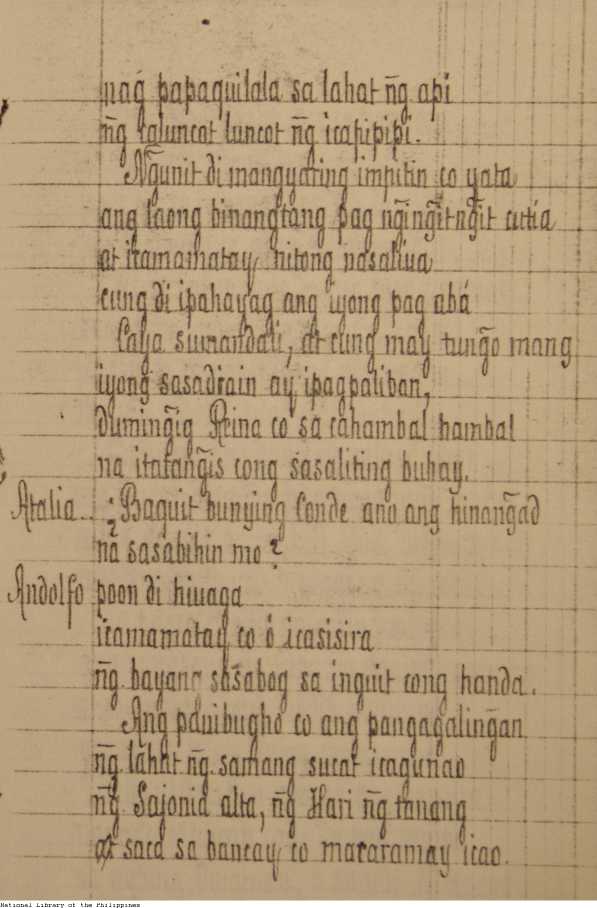 nag papaquilala sa lahat n̄g api
n̄g lgluncot luncot n̄g icapipipi.
N̄gunit di mangyaring impitin co yata
ang laong binangtang pag n̄gin̄gitn̄git cutia
at icamamatay nitong nasaliua
cung di ipahayag ang iyong pag abá
Caya sumandali, at cung may tun̄go mang
iyong sasadiain ay ipagpaliban,
dumin̄gig Reina co sa cahambal hambal
na itatan̄gis cong sasaliting buhay.
Atalia .. ¿Baquit bunying Conde ano ang hinan̄gad
na sasabihin mo?
Andolfo poon di hiuaga
icamamatay co ó icasisira
n̄g bayang sasabog sa inguit cong handa.
Ang panibugho co ang pangagalin̄gan
n̄g lahat n̄g samang sucat icagunao
n̄g Sajonia alta, n̄g Hari n̄g tanang
at saca sa bangcay co mararamay icao.
National Library of the Philippines